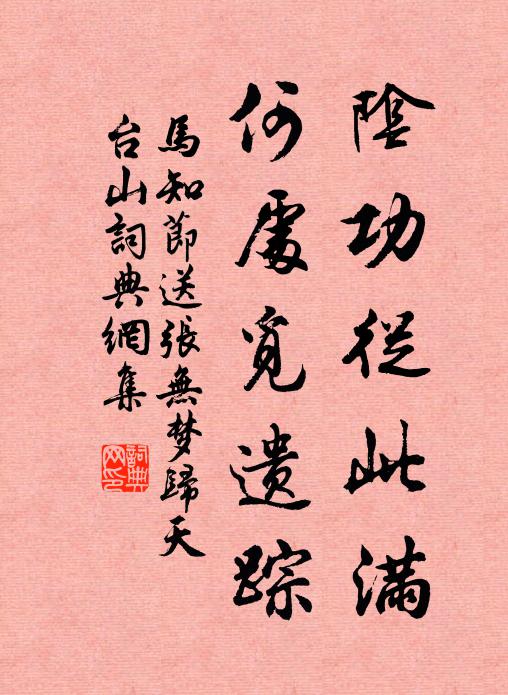 陰功從此滿
何處覓遺踪
馬知節送張無梦歸天
台山詞典網集
詞典
网印